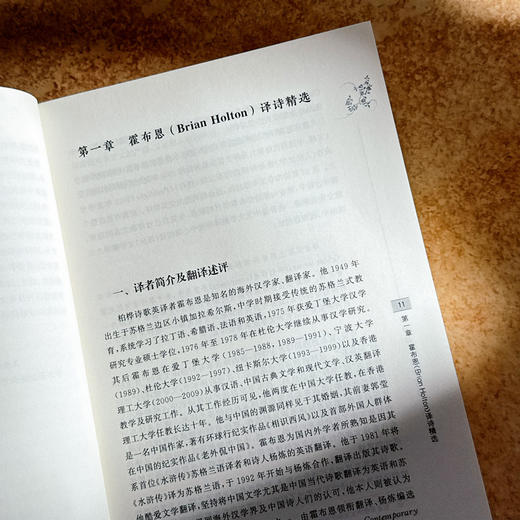 第一章 霍布恩（Brian Holton）译诗精选
一、译者简介及翻译述评
柏桦诗歌英译者霍布恩是知名的海外汉学家、翻译家。他 1949 年
出生于苏格兰边区小镇加拉希尔斯，中学时期接受传统的苏格兰式教
育，系统学习了拉丁语、希腊语、法语和英语，1975 年获爱丁堡大学汉学
研究专业硕士学位，1976 年至 1978 年在杜伦大学继续从事汉学研究。
其后霍布恩在爱丁堡大学（1985—1988，1989—1991）、宁波大学
（1989）、杜伦大学（1992—1997）、纽卡斯尔大学（1993—1999）以及香港
理工大学（2000—2009）从事汉语、中国古典文学和现代文学、汉英翻译
教学及研究工作。从其工作经历可见，他两度在中国大学任教，在香港
理工大学任教长达十年。他与中国的渊源同样见于其婚姻，其前妻郭莹
是一名中国作家，著有环球行纪实作品《相识西风》以及首部外国人群体
在中国的纪实作品《老外侃中国》。霍布恩为国内外学者所熟知是因其
系首位《水浒传》苏格兰语译者和诗人杨炼的英语翻译。他于 1981 年将
《水浒传》译为苏格兰语，于 1992 年开始与杨炼合作，翻译出版其诗歌。
他酷爱文学翻译，坚持将中国文学尤其是中国当代诗歌翻译为英语和苏
海外汉学界及中国诗人们的认可，他本人则被认为
由霍布恩领衔翻译、杨炼编选
Contemporary
11
第一章 霍布恩（Brian Holton）译诗精选